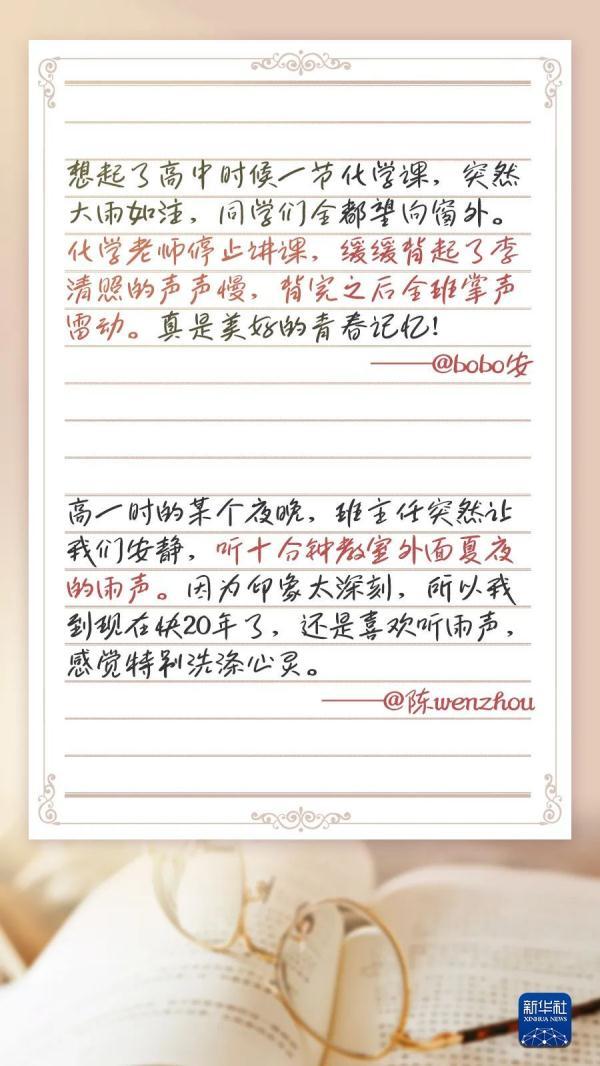 想起了高中时候一节化学课，突然
大雨如注，同学们全都望向窗外。
化学老师停止讲课，缓缓背起了李
清照的声声慢，背完之后全班掌声
雷动。真是美好的青春记忆！
——@bobo安
高一时的某个夜晚，班主任突然让
我们安静，听十分钟教室外面夏夜
的雨声。因为印象太深刻，所以我
到现在快20年了，还是喜欢听雨声，
感觉特别洗涤心灵。
——@陈wenzhou
新华社
XINHUA NEWS